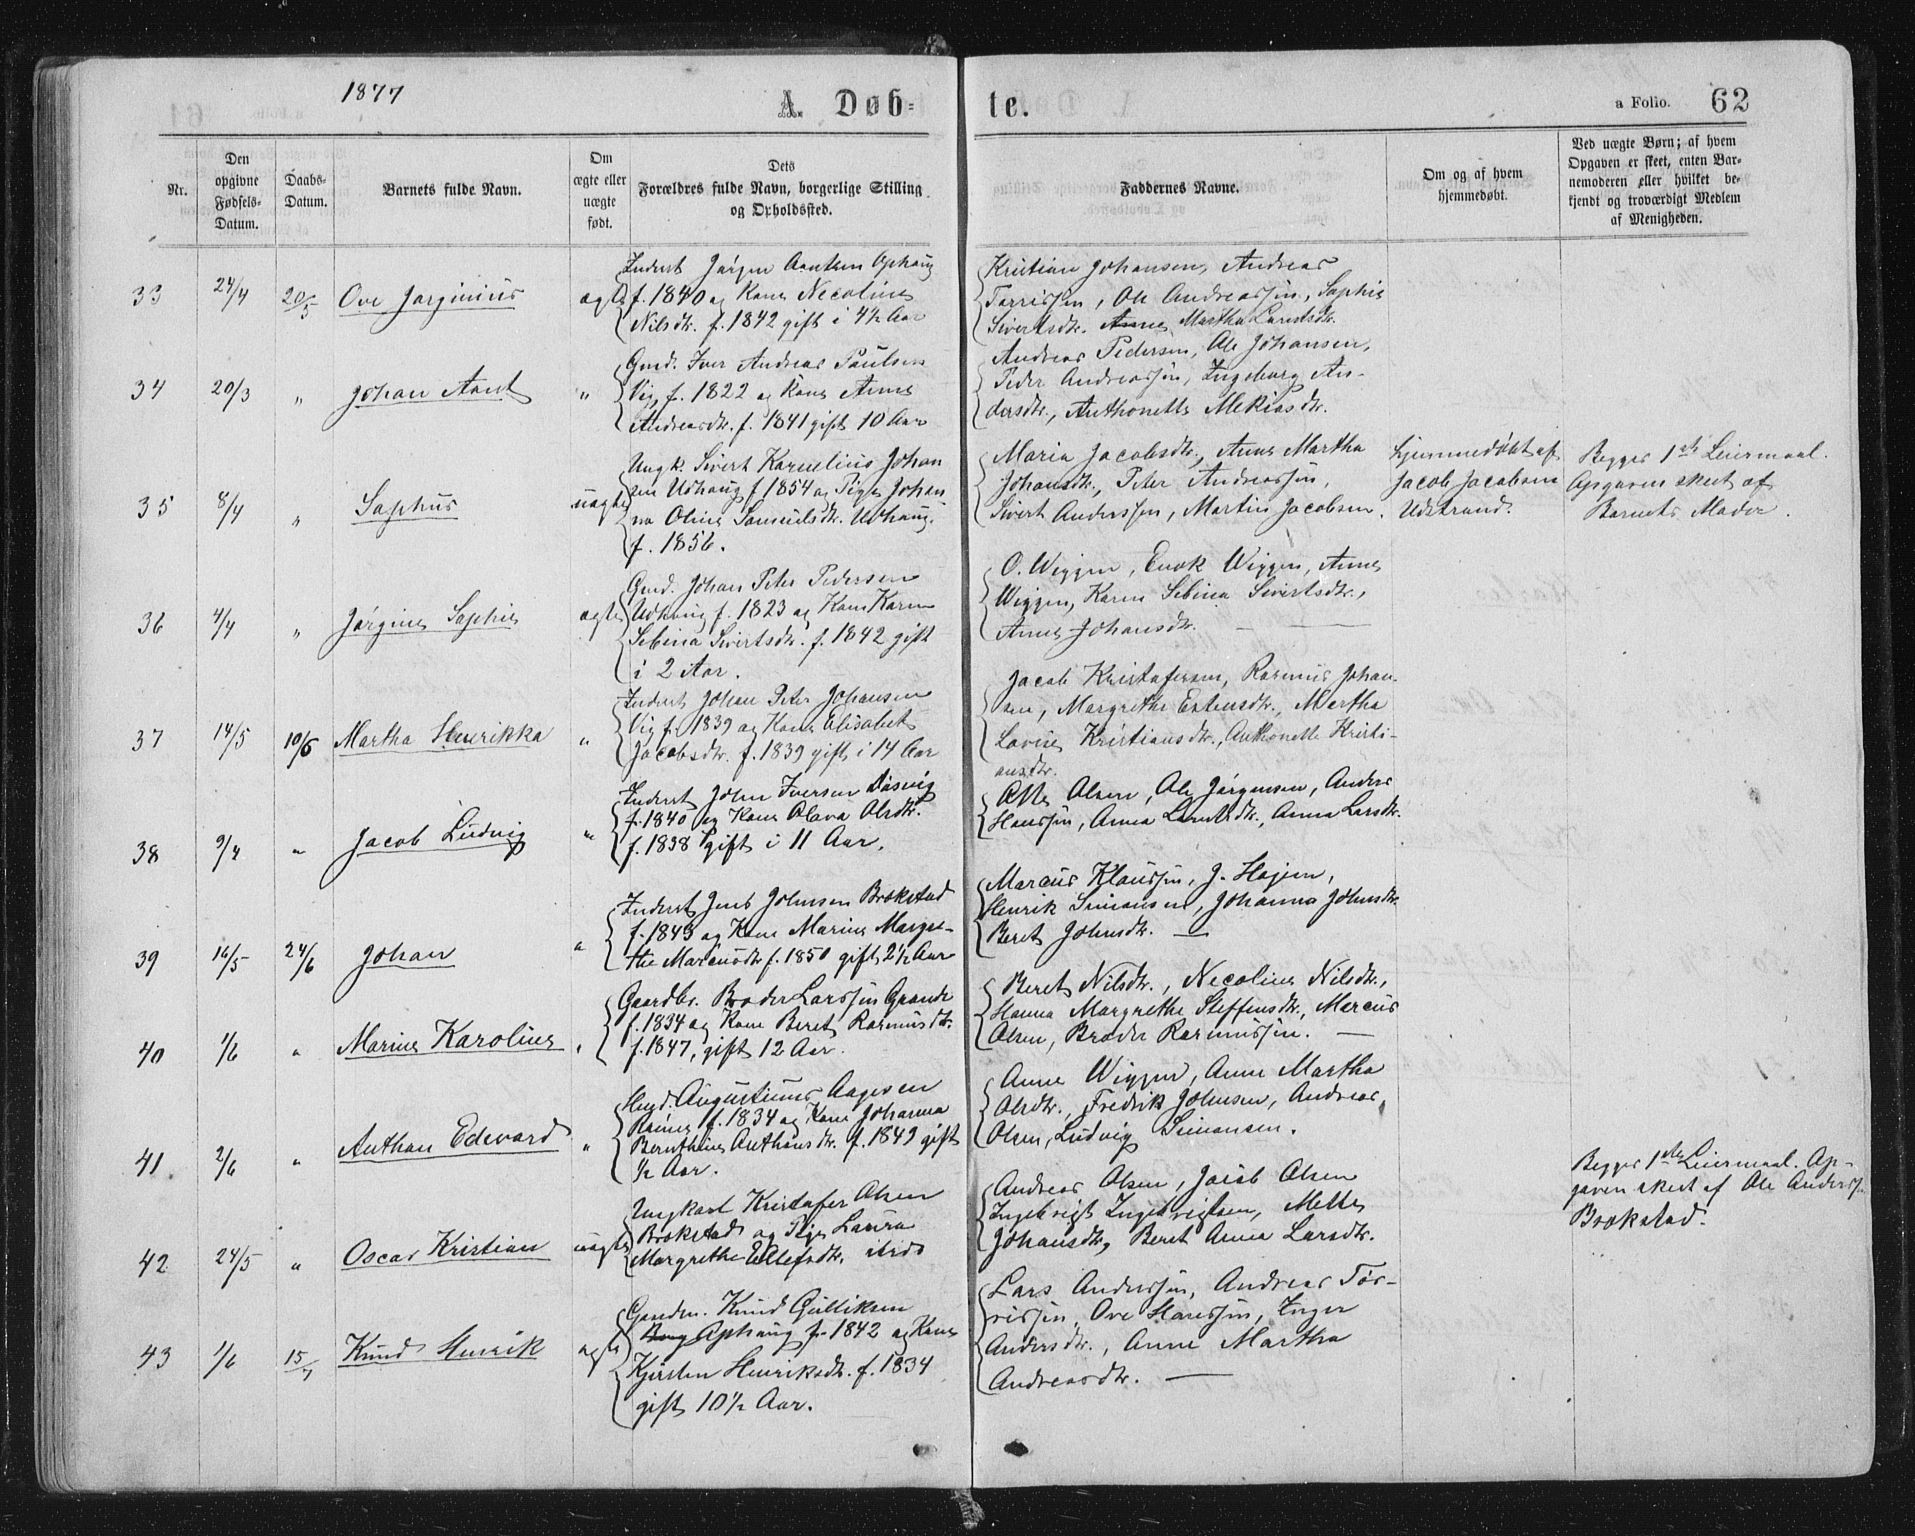 1877
A. Døb-
te.
a Folio.
62
Nr.
Den opgivne Fødsels-Datum.
Daabs-Datum.
Barnets fulde Navn.
Om ægte eller uægte født.
Dets Forældres fulde Navn, borgerlige Stilling og Opholdssted.
Faddernes Navne.
Om og af hvem hjemmedøbt.
Ved uægte Børn; af hvem Opgaven er skeet, enten Bar-nemoderen eller hvilket be-kjendt og troværdigt Medlem af Menigheden.
33 24/4 20/5 Ove Jørginius ægte
Inderst Jørgen Arntsen Ophaug
f. 1840 og Kone Necoline
Nilsdtr. f. 1842 gift i 4½ Aar
Kristian Johansen, Andreas
Tørrissen, Ole Andreassen, Sophie
Sivertsdtr. Anne Martha Larsdtr.
34 20/3 " Johan Arnt "
Gmd. Iver Andreas Paulsen
Vig, f. 1822 og Kone Anne
Andreasdtr. f. 1841 gift 10 Aar
Andreas Pedersen, Ole Johansen,
Peder Andreassen, Ingeborg An-
dersdtr., Anthonette Mekiasdtr.
35 8/4 " Sophus uægte
Ungk. Sivert Kornelius Johan
sen Udhaug f 1854 og Pige Johan
na Oline Samuelsdtr. Udhaug.
f. 1856.
Maria Jacobsdtr., Anne Martha
Johansdtr., Peter Andreassen,
Sivert Anderssen, Martin Jacobsen.
Hjemmedøbt af
Jacob Jacobsen
Udstrand.
Begges 1ste Leiermaal.
Opgaven skeet af
Barnets Moder.
36 4/4 " Jørgine Sophie ægte
Gmd. Johan Peter Pedersen
Udhaug f. 1823 og Kone Karen
Sebina Sivertsdtr. f. 1842 gift
i 2 Aar.
O. Wiggen, Enok Wiggen, Anne
Wiggen, Karen Sebina Sivertsdtr.,
Anne Johansdtr. —
37 14/5 10/6 Martha Henrikka "
Inderst Johan Peter Johansen
Vig f. 1839 og Kone Elisabet
Jacobsdtr. f. 1839 gift i 14 Aar
Jacob Kristofersen, Rasmus Johan-
sen, Margrethe Estensdtr., Martha
Lovise Kristiansdtr., Anthonette Kristi-
ansdtr.
38 9/4 " Jacob Ludvig "
Inderst John Iversen Døsvig
f. 1840 og Kone Olava Olsdtr.
f. 1838 gift i 11 Aar.
Otto Olsen, Ole Jørgensen, Anders
Hanssen, Anna Larsdtr., Anna Larsdtr.
39 16/5 24/6 Johan "
Inderst Jens Johnsen Brækstad
f. 1843 og Kone Marine Margre-
the Marcusdtr f. 1850 gift 2½ Aar
Marcus Klaussen, J. Højem,
Henrik Simonsen, Johanna Johnsdtr.
Beret Johnsdtr. —
40 1/6 " Marine Karoline "
Gaardbr. Broder Larssen Grande
f. 1834 og Kone Beret Rasmusdtr.
f. 1847, gift 12 Aar.
Beret Nilsdtr., Necoline Nilsdtr.,
Hanna Margrethe Steffensdtr., Marcus
Olsen, Broder Rasmussen. —
41 2/6 " Anthon Edevard "
Hmd. Augustinus Aagesen
f. 1834 og Kone Johanna
Benthine Anthonsdtr. f. 1849 gift
½ Aar.
Anne Wiggen, Anne Martha
Olsdtr., Fredrik Johnsen, Andreas
Olsen, Ludvig Simonsen.
42 24/5 " Oscar Kristian uægte
Ungkarl Kristofer Olsen
Brækstad og Pige Laura
Margrethe Ellefsdtr. itids
Andreas Olsen, Jacob Olsen
Ingebrigt Ingebrigtsen, Mette
Johansdtr, Beret Anna Larsdtr.
Begges 1ste Leiermaal. Op-
gaven skeet af Ole Anderss.
Brækstad.
43 1/6 15/7 Knud Henrik ægte
Gaardm. Knud Gulliksen
Ophaug f. 1842 og Kone
Kjersten Henriksdtr. f. 1834
gift 10½ Aar.
Lars Anderssen, Andreas Tør-
rissen, Ove Hanssen, Inger
Andersdtr., Anne Martha
Andreasdtr. —